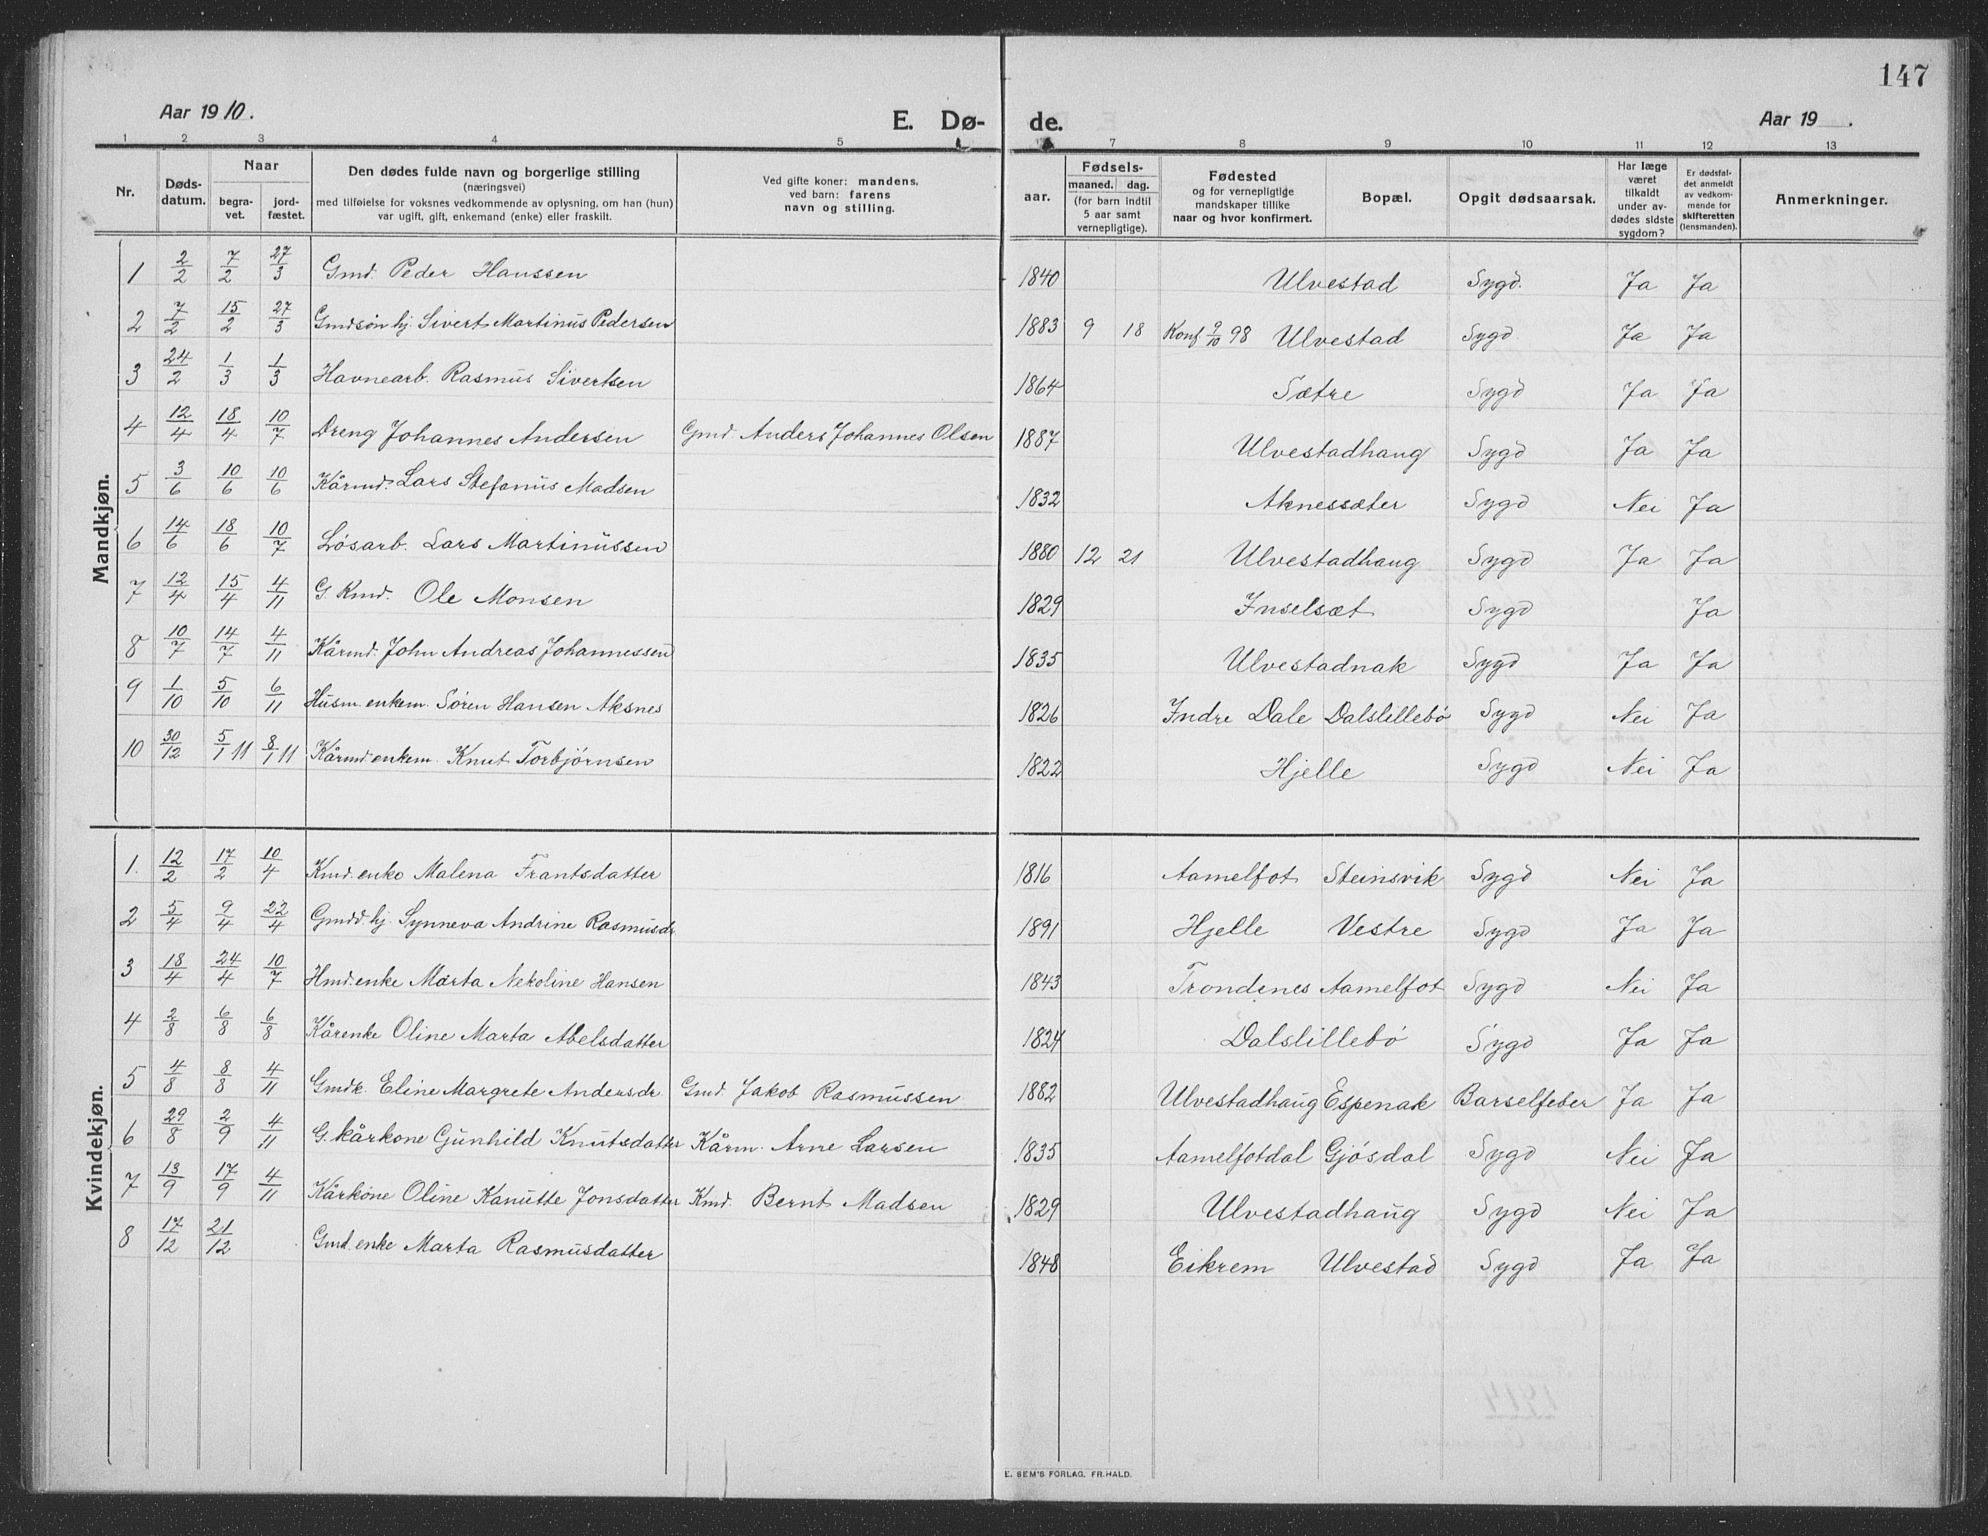 147
Aar 1910. E. Dø- de. Aar 19 .
1 2 3 4 5 7 8 9 10 11 12 13
Nr. Døds-datum. Naar begra-vet. jord-fæstet. Den dødes fulde navn og borgerlige stilling (næringsvei) med tilføielse for voksnes vedkommende av oplysning, om han (hun) var ugift, gift, enkemand (enke) eller fraskilt. Ved gifte koner: mandens. ved barn: farens navn og stilling. aar. Fødsels- maaned. dag. (for barn indtil 5 aar samt vernepligtige). Fødested og for vernepligtige mandskaper tillike naar og hvor konfirmert. Bopæl. Opgit dødsaarsak. Har læge været tilkaldt under av-dødes sidste sygdom? Er dødsfal-det anmeldt av vedkom-mende for skifteretten (lensmanden). Anmerkninger.
Mandkjøn.
1 2/2 7/2 27/3 Gmd. Peder Hanssen 1840 Ulvestad Sygd. Ja Ja
2 7/2 15/2 27/3 Gmdsøn hj. Sivert Martinus Pedersen 1883 9 18 Konf 9/10 98 Ulvestad Sygd. Ja Ja
3 24/2 1/3 1/3 Havnearb. Rasmus Sivertsen 1864 Sætre Sygd Ja Ja
4 12/4 18/4 10/7 Dreng Johannes Andersen Gmd. Anders Johannes Olsen 1887 Ulvestadhaug Sygd Ja Ja
5 3/6 10/6 10/6 Kårmd. Lars Stefanus Madsen 1832 Aknessæter Sygd Nei Ja
6 14/6 18/6 10/7 Løsarb. Lars Martinussen 1880 12 21 Ulvestadhaug Sygd Ja Ja
7 12/4 15/4 4/11 G. Kmd. Ole Monsen 1829 Inselsæt Sygd Ja
8 10/7 14/7 4/11 Kårmd. John Andreas Johannessen 1835 Ulvestadnak Sygd Ja Ja
9 1/10 5/10 6/11 Husm. enkem. Søren Hansen Aksnes 1826 Indre Dale Dalslillebø Sygd Nei Ja
10 30/12 5/1 11 8/1 11 Kårmd enkem. Knut Torbjørnsen 1822 Hjelle Sygd Nei Ja
Kvindekjøn.
1. 12/2 17/2 10/4 Kmd. enke Malena Frantsdatter 1816 Aamelfot Steinsvik Sygd Nei Ja
2 5/4 9/4 22/4 Gmdd hj. Synneva Andrine Rasmusdr. 1891 Hjelle Vestre Sygd Ja Ja
3 18/4 24/4 10/7 Hmd. enke Marta Nekoline Hansen 1843 Trondenes Aamelfot Sygd Nei Ja
4 2/8 6/8 6/8 Kårenke Oline Marta Abelsdatter 1824 Dalslillebø Sygd Ja Ja
5 4/8 8/8 4/11 Gmdk. Eline Margrete Andersdr. Gmd. Jakob Rasmussen 1882 Ulvestadhaug Espenak Barselfeber Ja Ja
6 29/8 2/9 4/11 G. kårkone Gunhild Knutsdatter Kårm. Arne Larsen 1835 Aamelfotdal Gjøsdal Sygd Nei Ja
7 13/9 17/9 4/11 Kårkone Oline Kanutte Jonsdatter Kmd. Bernt Madsen 1829 Ulvestadhaug Sygd Nei Ja
8 17/12 21/12 Gmd. enke Marta Rasmusdatter 1848 Eikrem Ulvestad Sygd Ja Ja
E. SEM'S FORLAG, FR.HALD.